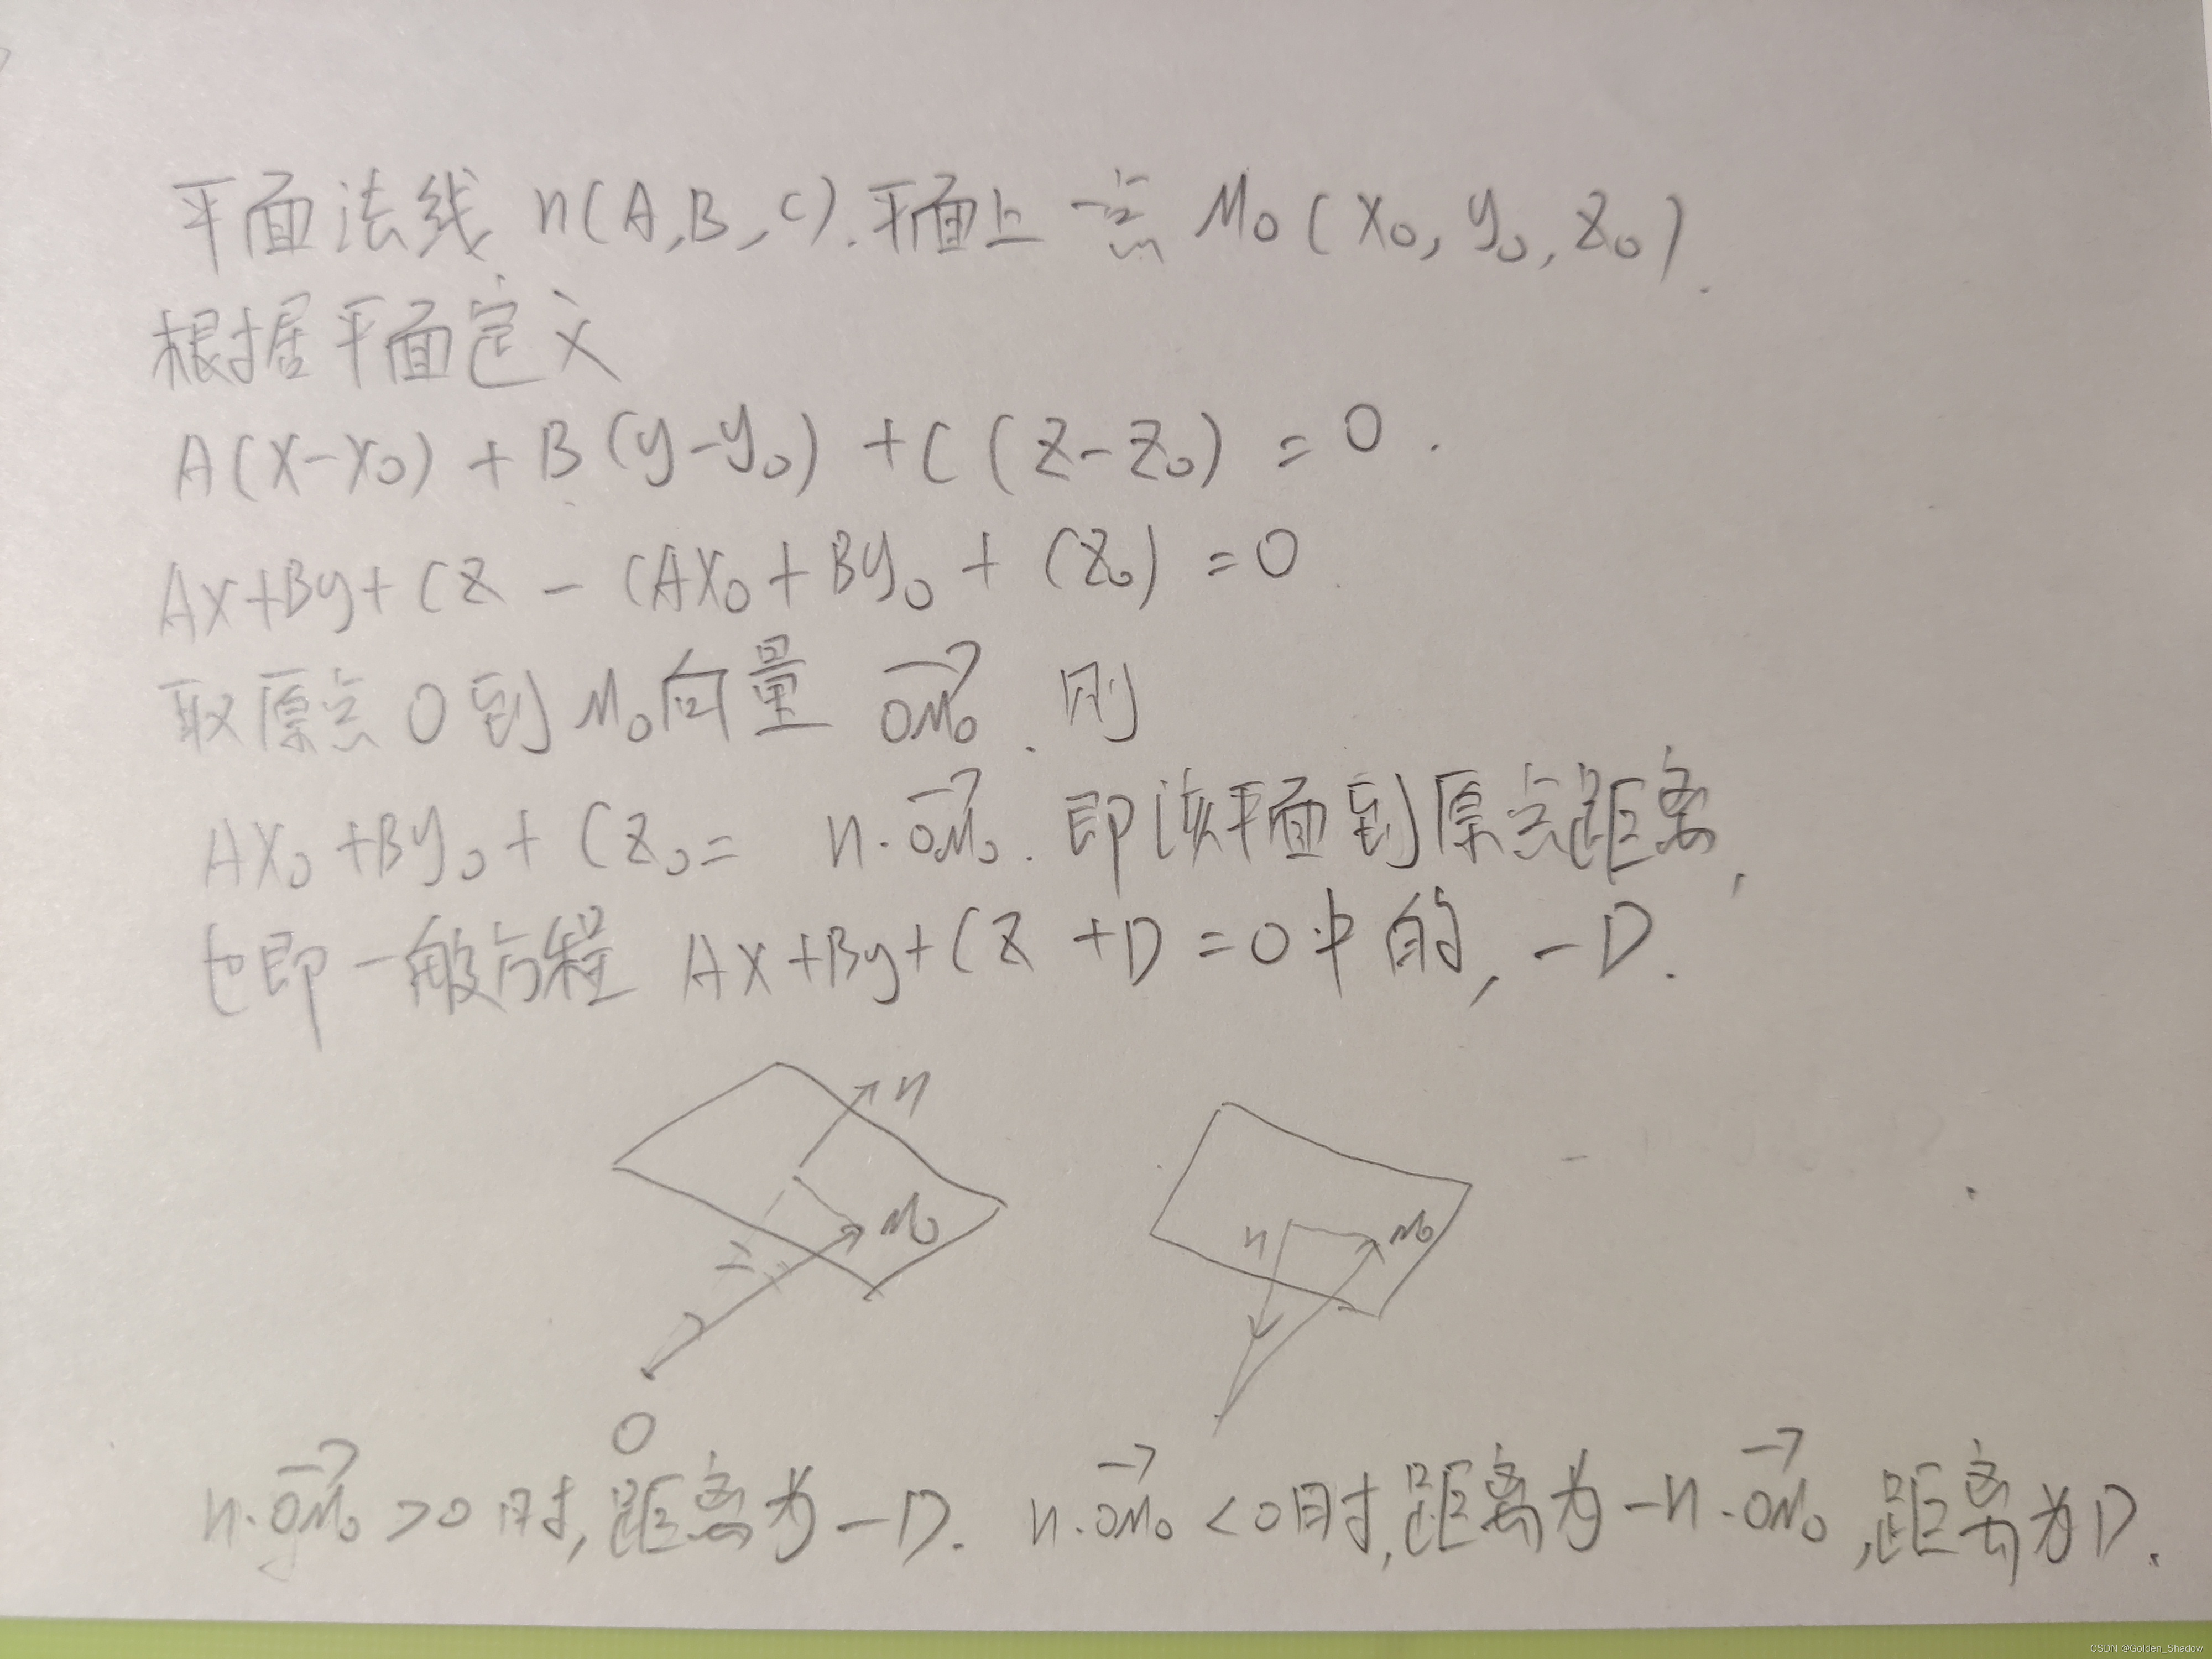 平面法线 n(A,B,C).平面上一点 M₀(x₀,y₀,z₀).
根据平面定义
A(x-x₀)+B(y-y₀)+C(z-z₀)=0.
Ax+By+Cz-(Ax₀+By₀+Cz₀)=0
取原点O到M₀向量 \overrightarrow{OM₀}.则
Ax₀+By₀+Cz₀= n·\overrightarrow{OM₀}.即该平面到原点距离,
也即一般方程 Ax+By+Cz+D=0中的,-D.
n
M₀
O
n
M₀
n·\overrightarrow{OM₀}>0时,距离为-D. n·\overrightarrow{OM₀}<0时,距离为-n·\overrightarrow{OM₀},距离为D.
CSDN @Golden_Shadow